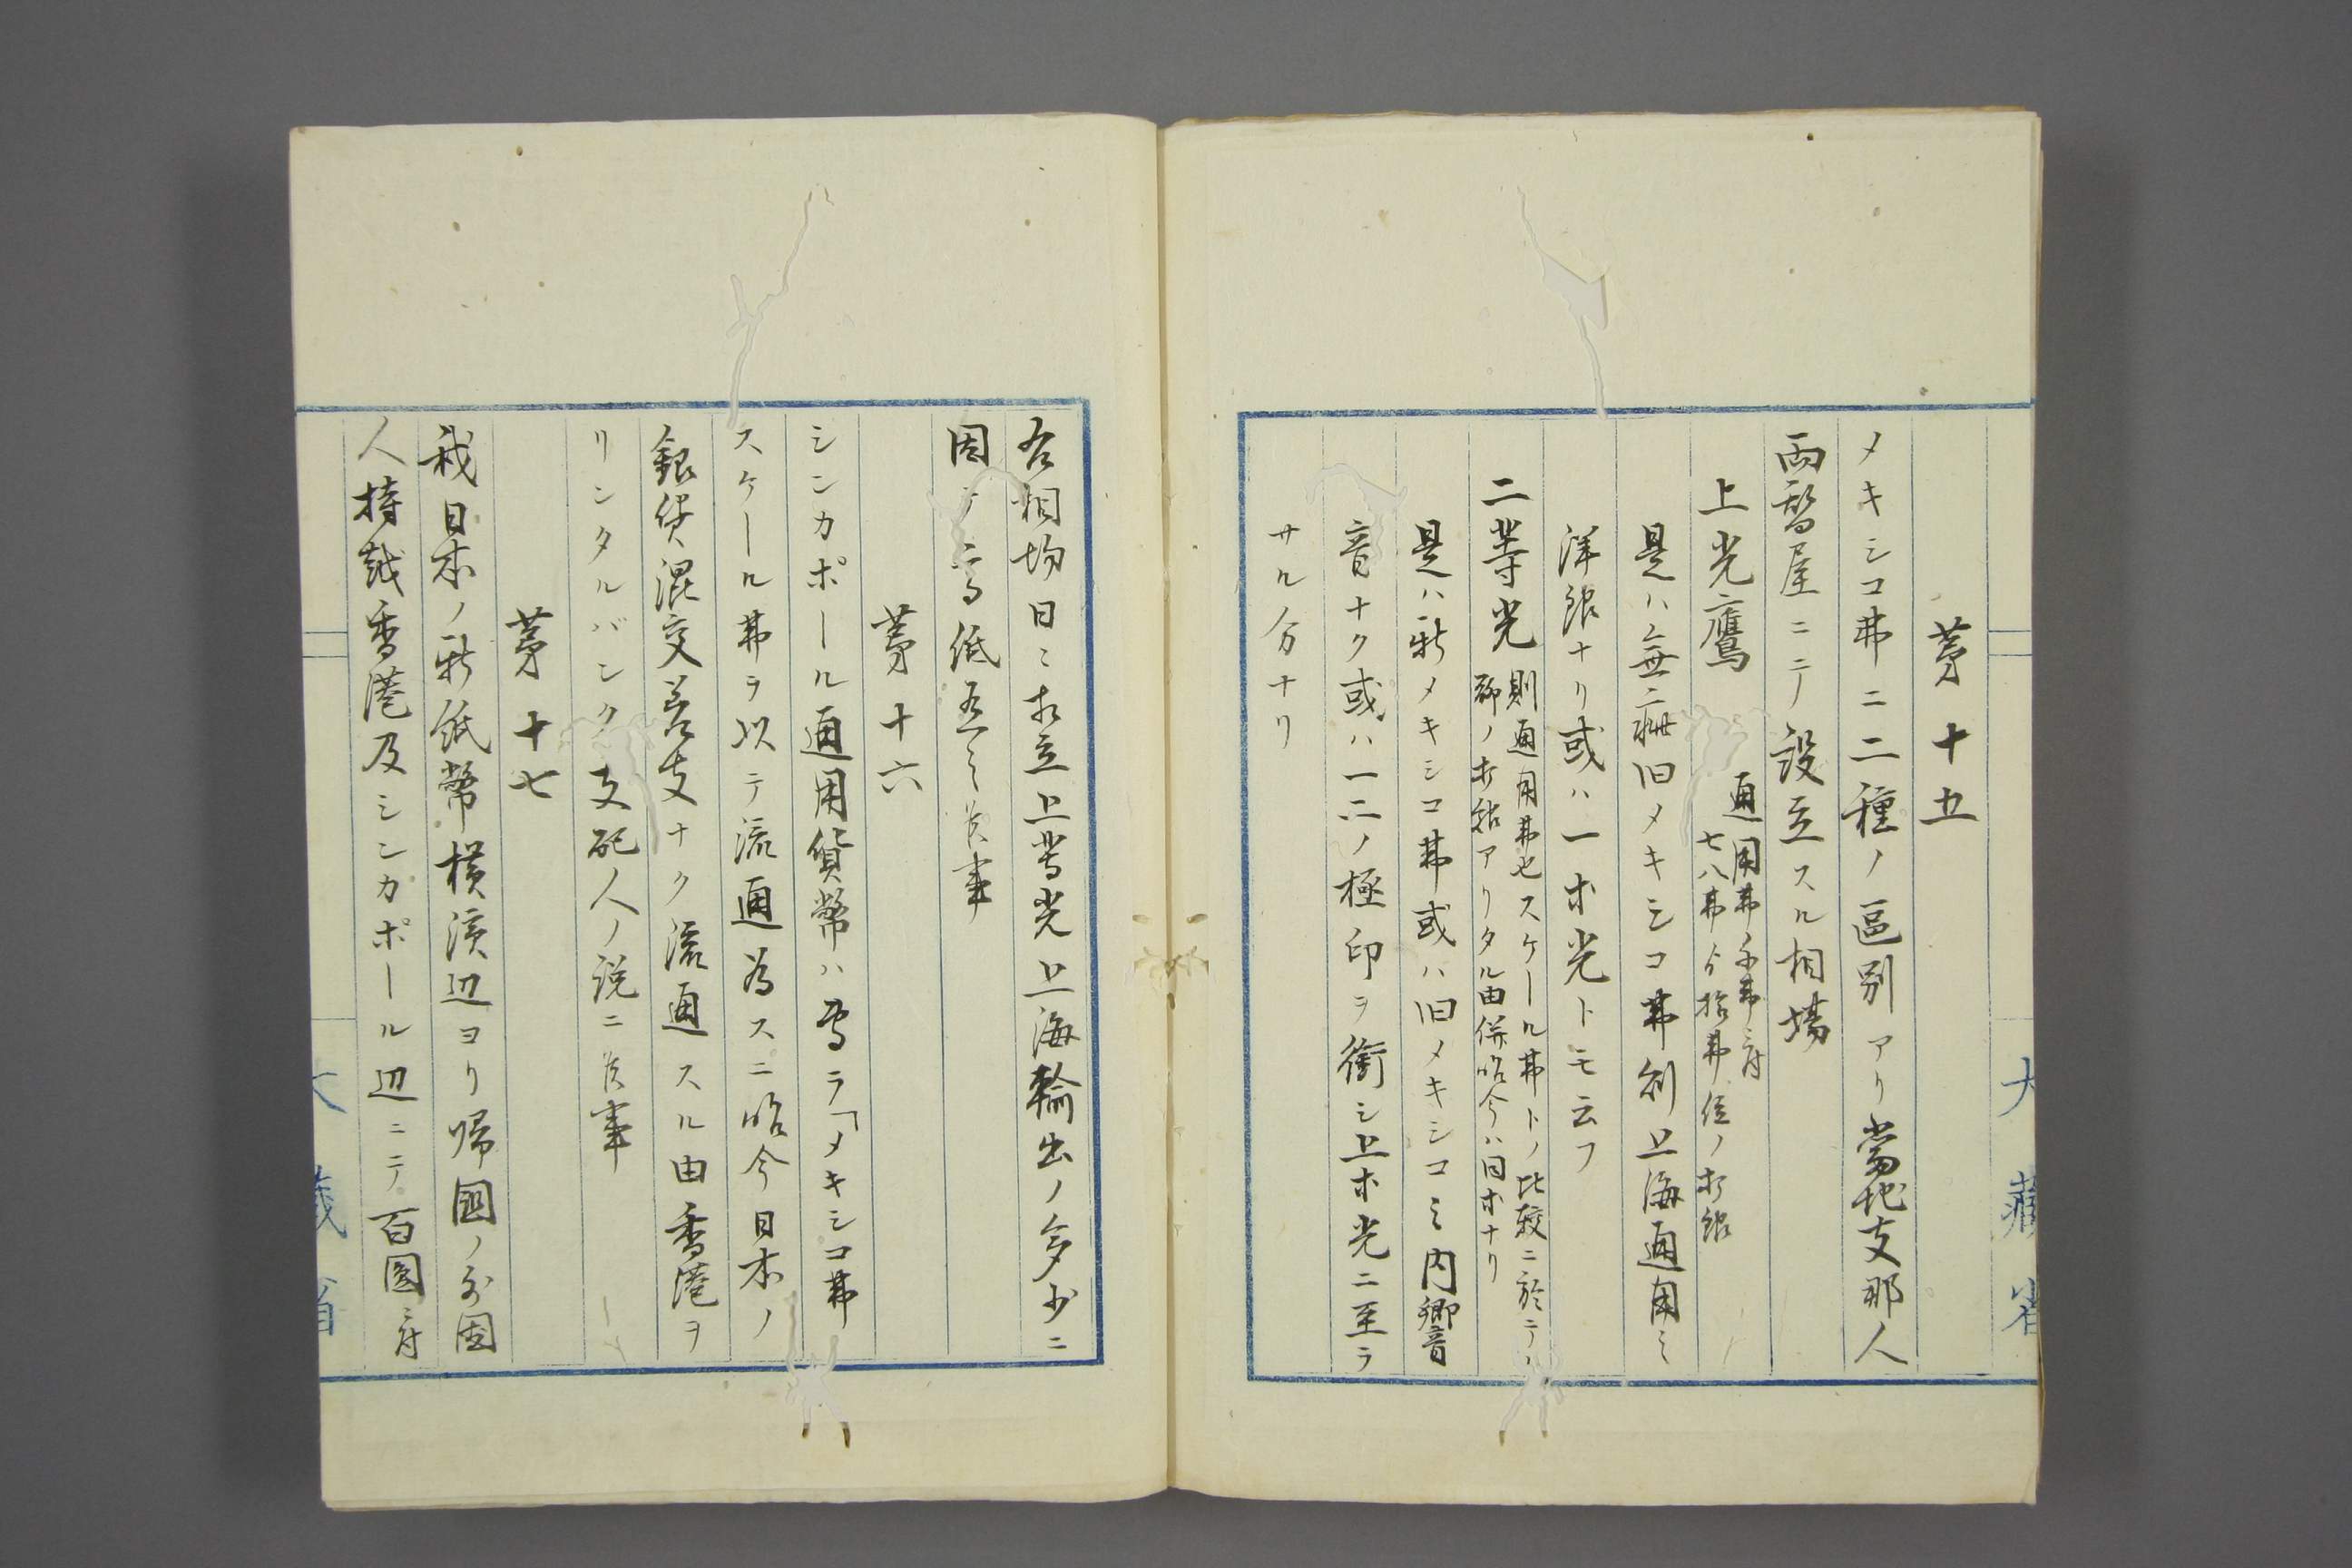 第十五
メキシコ弗ニ二種ノ區別アリ當地支那人
両替屋ニテ設立スル相場
上光鷹 通用弗千弗ニ付
七八弗ヨリ拾弗位ノ打銀
是ハ無疵旧メキシコ弗則上海通用ノ
洋銀ナリ或ハ一ホ光トモ云フ
二等光 則通用弗也スケール弗トノ比較ニ於テハ
聊ノ打銀アリタル由併昨今ハ同ホナリ
是ハ新メキシコ弗或ハ旧メキシコノ内響
音ナク或ハ一二ノ極印ヲ衝シ上ホ光ニ至ラ
サル分ナリ
大藏省
右相場日々相立上等光上海輸出ノ多少ニ
因テ高低有之候事
第十六
シンカポール通用貨幣ハ専ラ「メキシコ弗
スケール弗ヲ以テ流通為スニ昨今日本ノ
銀貨混交差支ナク流通スル由香港ヲ
リンタルバンク支配人ノ説ニ候事
第十七
我日本ノ新紙幣横濱辺ヨリ帰國ノ外国
人持越香港及シンカポール辺ニテ百圓ニ付
大藏省